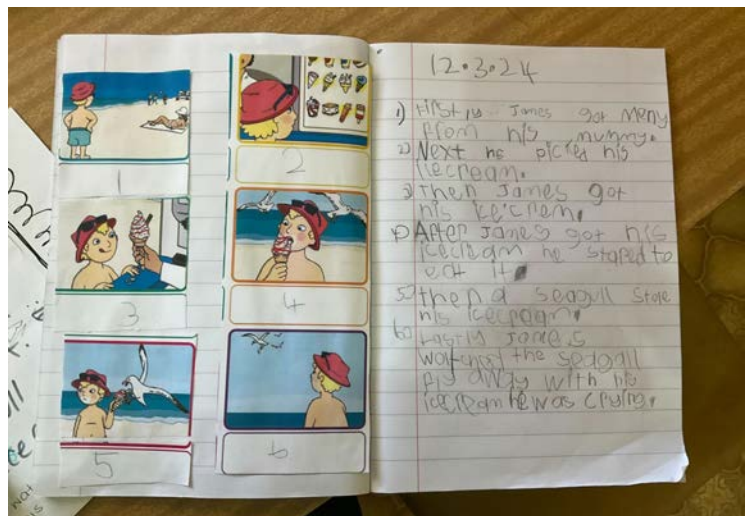 1
2
3
4
5
6
12.3.24
1) Firstly James got Meny
from his mummy.
2) Next he picked his
icecream.
3) Then James got
his icecrem.
4) After James got his
icecream he staped to
eat it
5) then a seagull stole
his icecream.
6) Lastly James
the seagall
fly away with his
icecream he was crying.